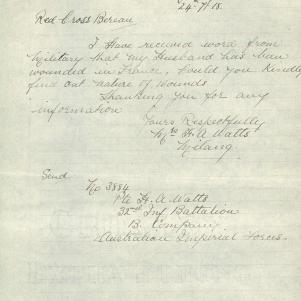 24th/4/18.
Red Cross Bureau
I Have received word from
Military that my Husband has been
wounded in France, Could you kindly
find out nature of wounds
Thanking you for any
information
Yours Respectfully
Mrs H. A Watts
Milang.
Send
No 3884
Pte H. A Watts
32nd Inf Battalion
B. Company
Australian Imperial Forces.